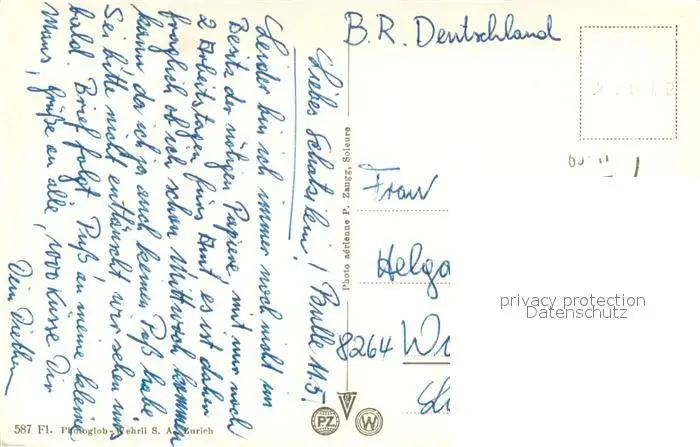 Liebes Schatzilein! Bulle 11.5.
Leider bin ich immer noch nicht im
Besitz der nötigen Papiere, mit nur noch
2 Arbeitstagen fürs Amt es ist daher
fraglich ob ich schon Mittwoch kommen
kann da ich ja auch keinen Paß habe
Sei bitte nicht enttäuscht wir sehen uns
bald. Brief folgt Puß an meine kleine
Maus, Grüße an alle, 1000 Küsse Dir
Dein
B.R. Deutschland
Frau
Helga
8264 W
Photo aérienne P. Zaugg, Soleure
587 Fl. Photoglob-Wehrli S. A. Zurich
PZ
W
privacy protection
Datenschutz